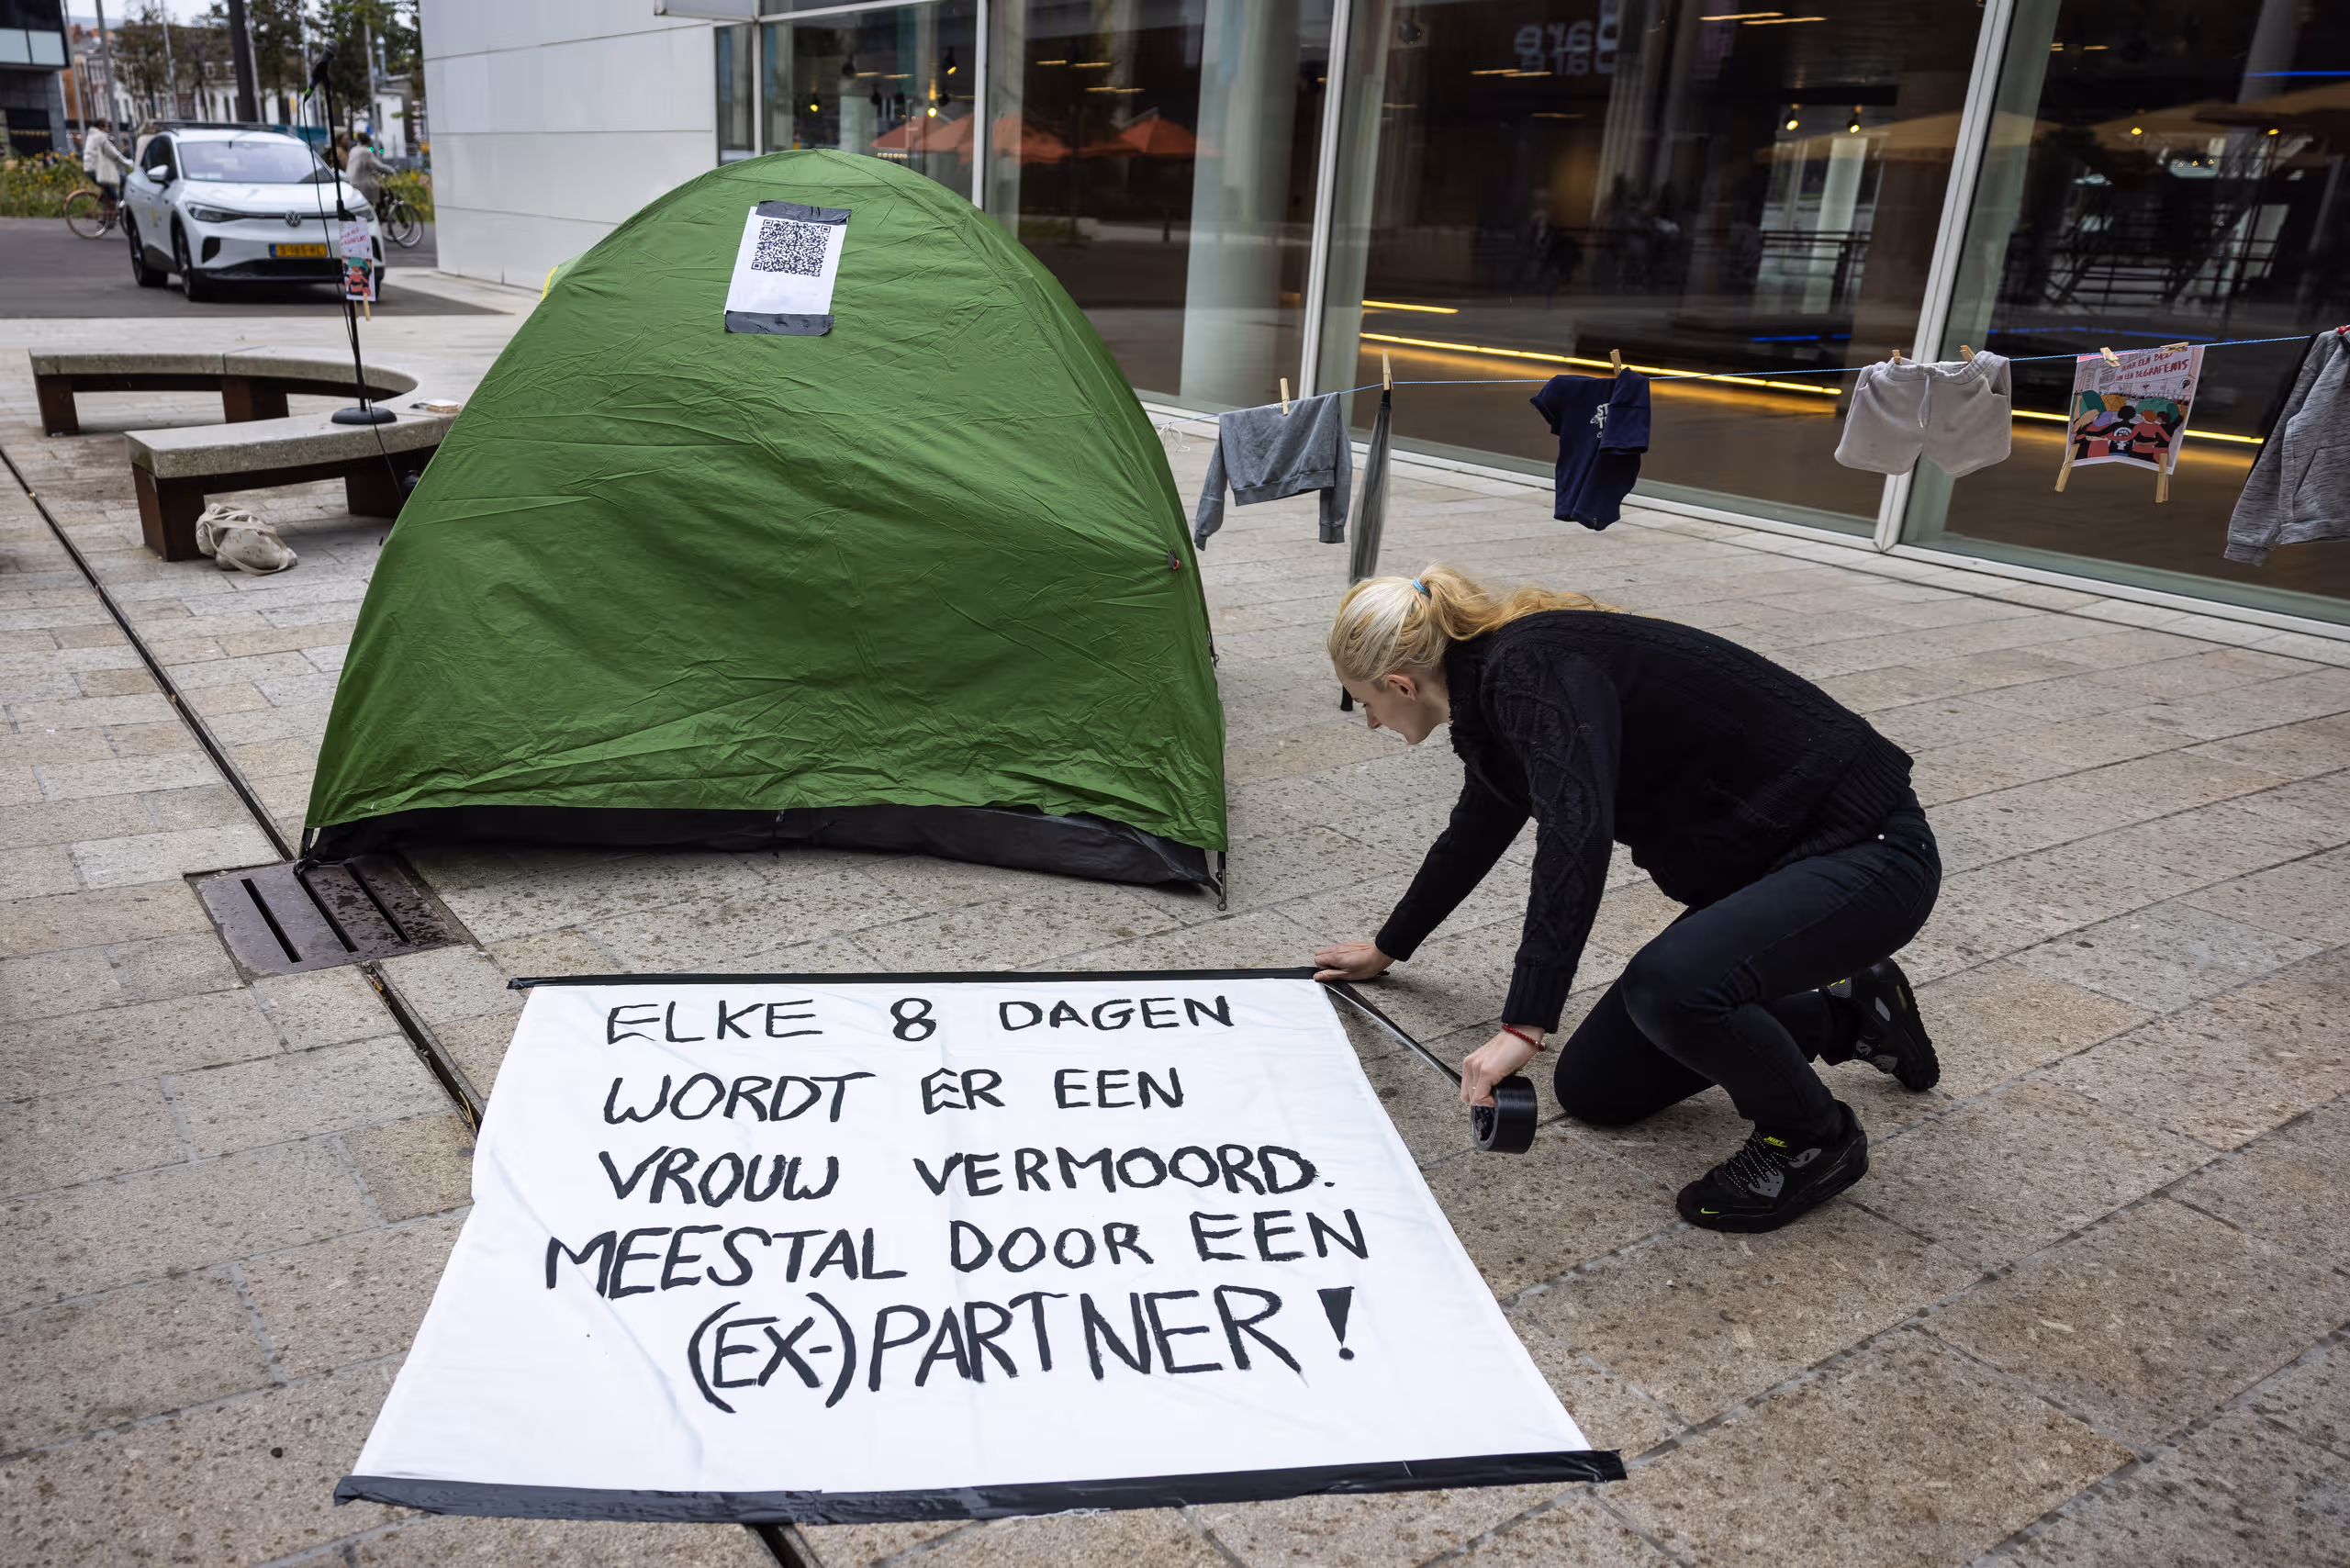 ELKE 8 DAGEN
WORDT ER EEN
VROUW VERMOORD.
MEESTAL DOOR EEN
(EX-)PARTNER!
BEGRAFENIS
NIKE